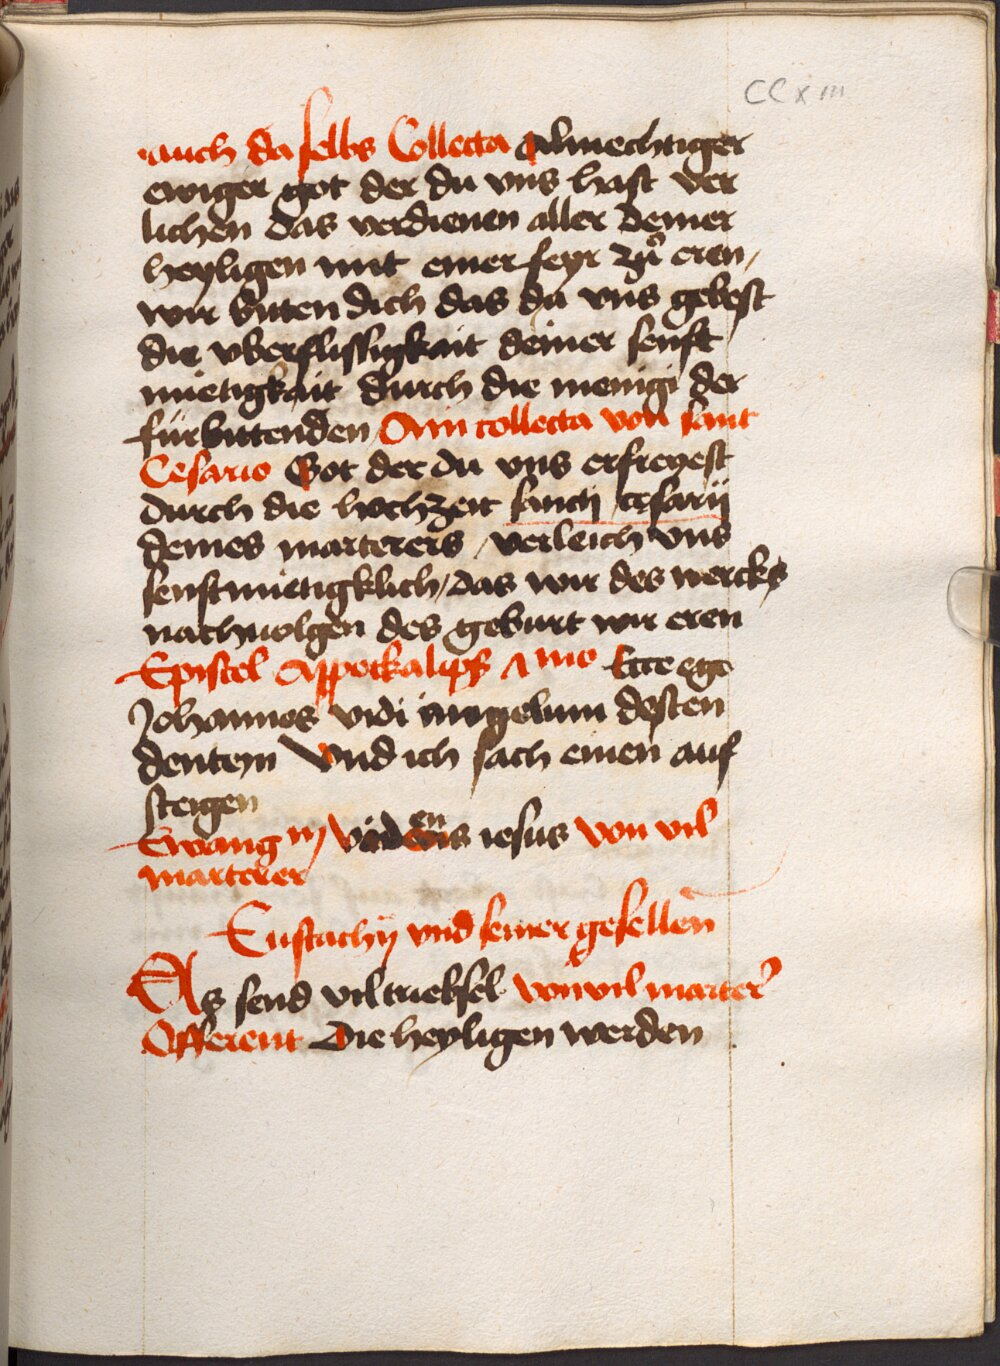 CCxiii
auch da selbs Collecta Almechtiger
ewiger got der du vns hast ver
lichen das verdienen aller deiner
heyligen mit einer feyr zů eren /
wir biten dich das du vns gebest
die vberflissigkait deiner senft
mietigkait durch die menigi der
fürbittenden / Ain collecta von sant
Cesario Got der du vns erfreyest
durch die hochzeit sancti cesarii
deines marterers / verleich vns
senftmietigklich / das wir des wercks
nachuolgen des geburt wir eren
Epistel Appockalips Ecce ego
Johannes vidi angelum descen
dentem Vnd ich sach einen auf
steigen
Ewang iij Videns iesus von vil
marterer
Eustachij vnd seiner gesellen
Es send vil triebsel von vil marter
Offerent Die heyligen werden